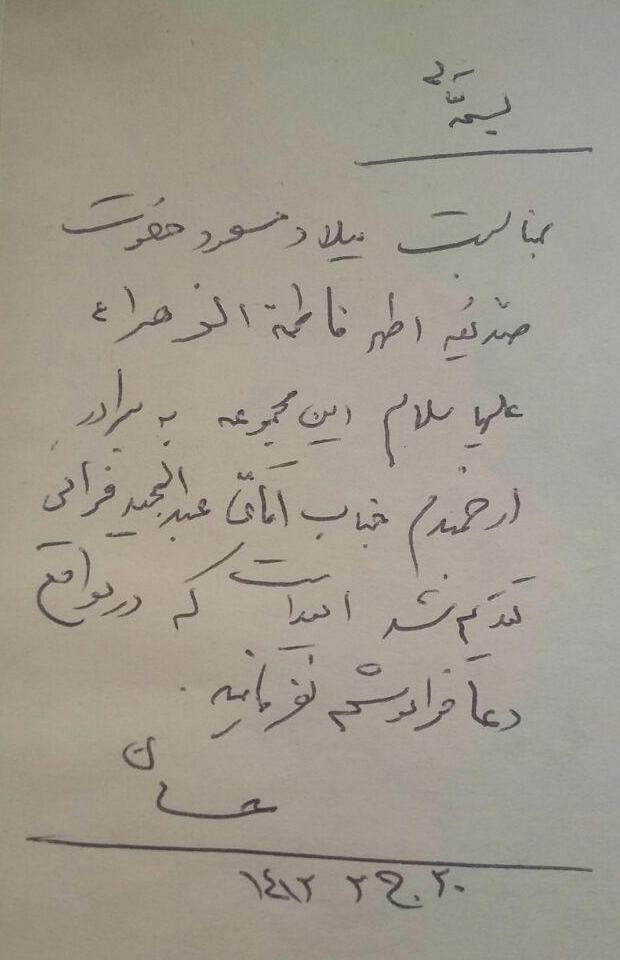 بسمه تعالی
بمناسبت میلاد مسعود حضرت
صدیقه اطهر فاطمة الزهراء
علیها سلام این مجموعه به برادر
ارجمندم جناب آقای عبدالمجید فراهی
تقدیم شد امید است که در مواقع
دعا فراموشم نفرمایید.
۲۰ ج ۲ ۱٤۱۲